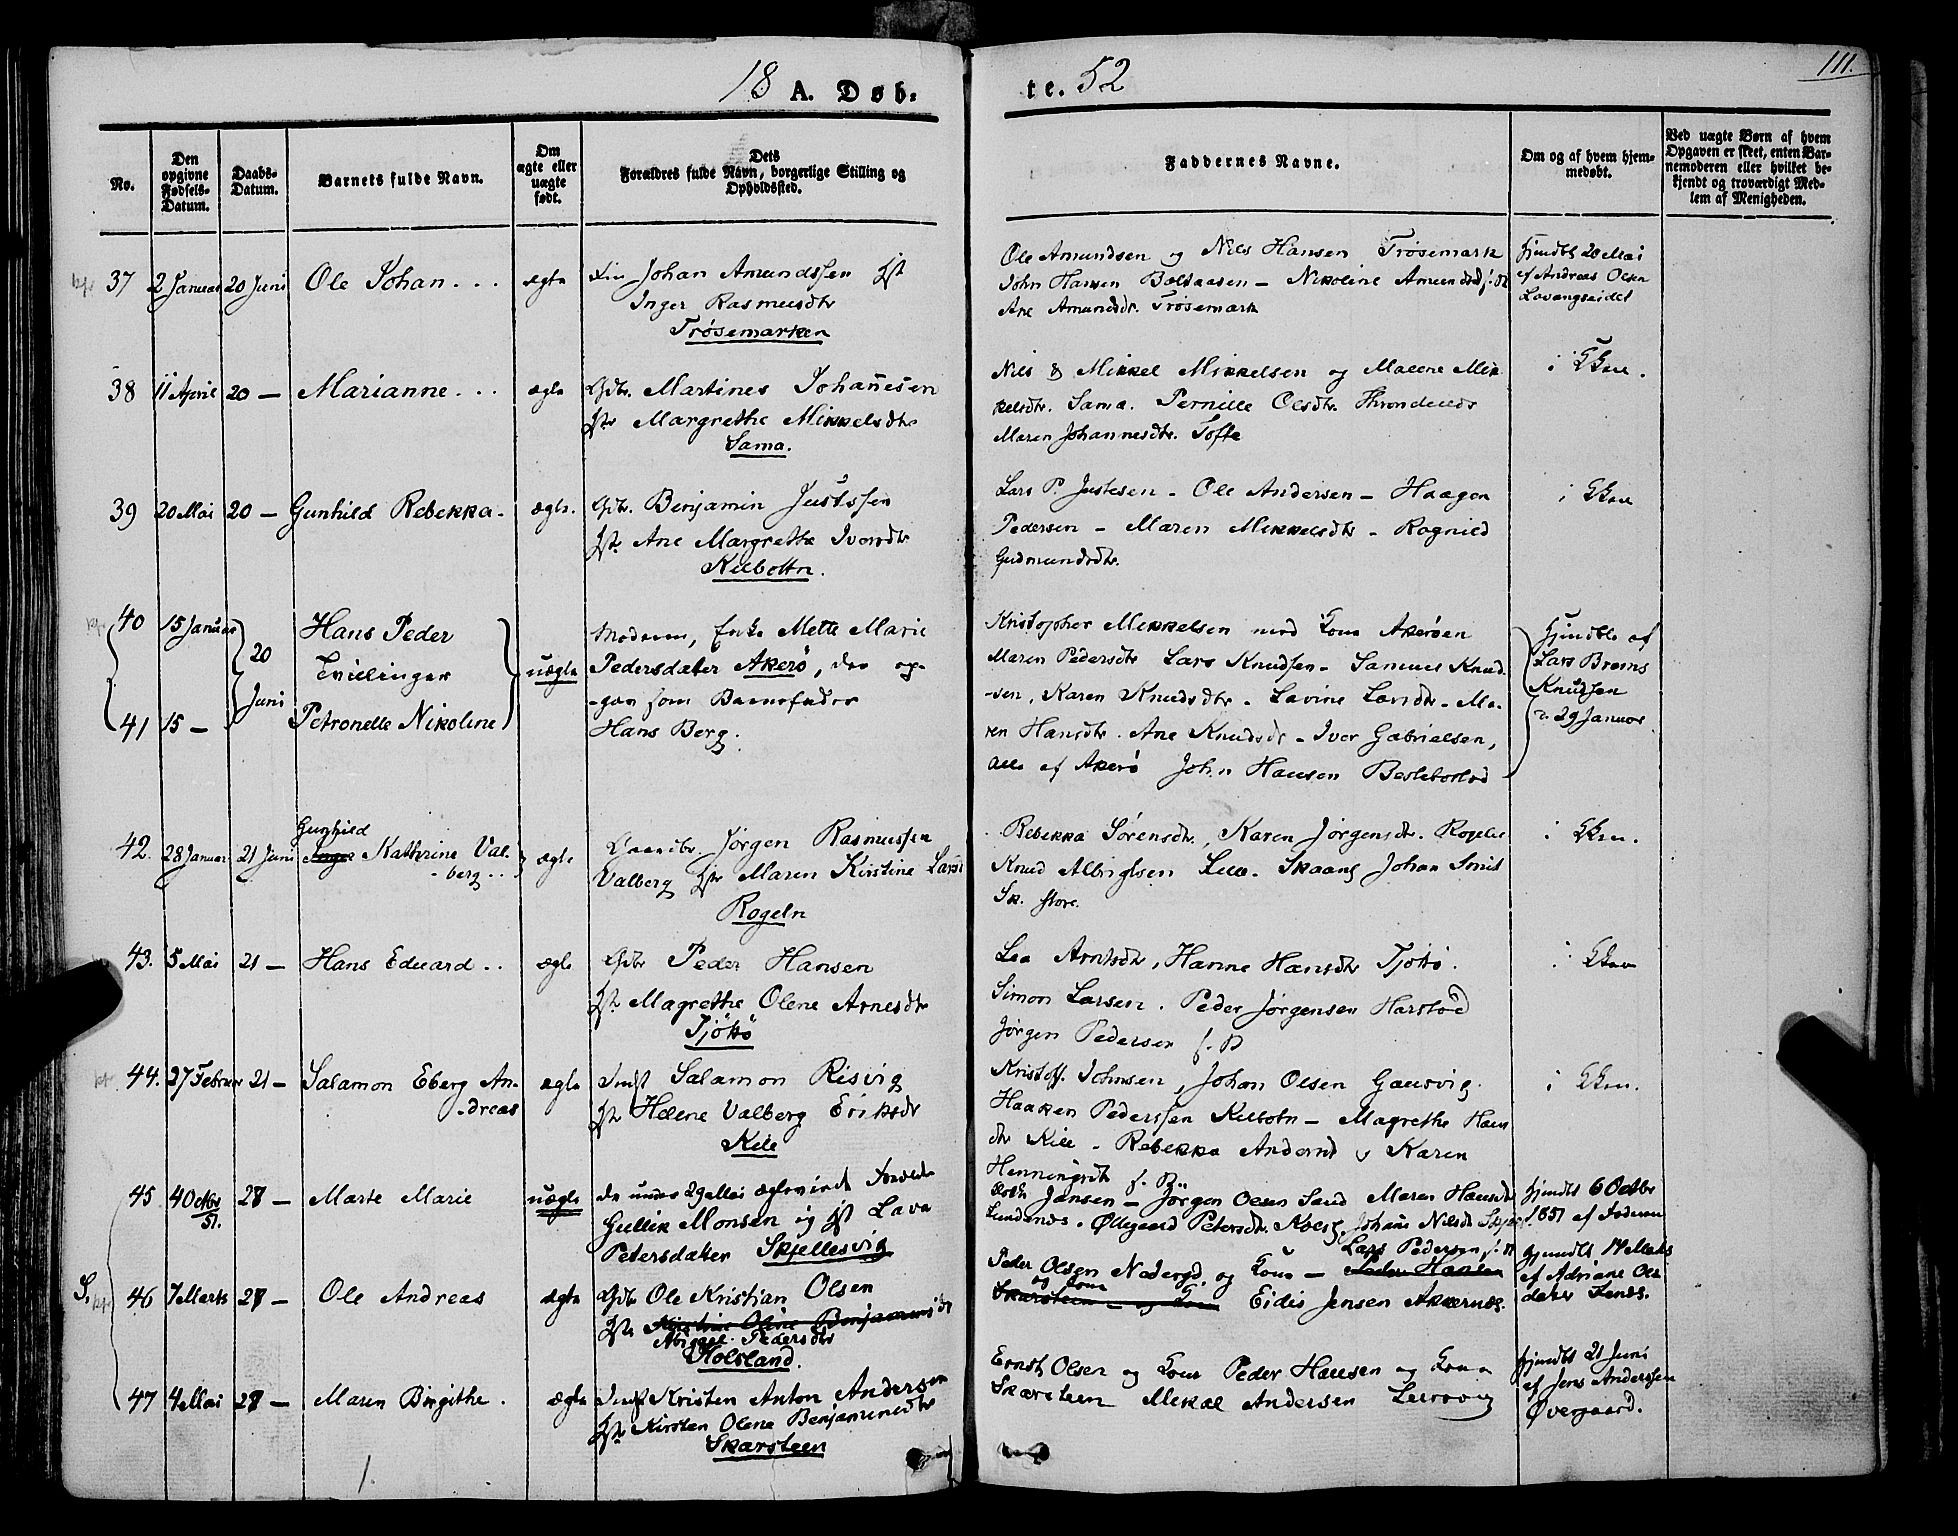 18 A. Døb-
te. 52
111.
No.
Den opgivne Fødsels-Datum.
Daabs-Datum.
Barnets fulde Navn.
Om ægte eller uægte født.
Dets Forældres fulde Navn, borgerlige Stilling og Opholdssted.
Faddernes Navne.
Om og af hvem hjem-medøbt.
Ved uægte Børn af hvem Opgaven er skeet, enten Bar-nemoderen eller hvilket be-kjendt og troværdigt Med-lem af Menigheden.
37 2 Januar 20 Juni Ole Johan ... ægte Johan Amundssen
Inger Rasmusdtr
Trøsemarken
Ole Amundsen og Nils Hansen Trøsemark
John Hansen Boltaasen - Nikoline Amundsd
Ane Amundsdtr. Trøsemark
hjmdbt 20 Mai
af Andreas Olsen
Lavangseidet
38 11 April 20 - Marianne ... ægte Gdbr. Martines Johañesen
Hstr Margrethe Mikkelsdtr
Sama.
Nils & Mikkel Mikkelsen og Malene Mik
kelsdtr. Sama. Pernille Olsdtr.
Maren Johannesdtr. Tofte
i Kken.
39 20 Mai 20 - Gunhild Rebekka - ægte. Gdbr. Benjamin Justssen
Hstr Ane Margrethe Iversdtr
Kilbottn.
Lars P. Justesen - Ole Andersen - Haagen
Pedersen - Maren Mikkelsdtr - Ragnild
Gudmundsdtr.
i Kken
40 15 Januar 20 Juni Hans Peder
Tvillinger
41 15 - Petronelle Nikoline
uægte
Moderen, Enke Mette Marie
Pedersdatter Akerø, der op-
-gav som Barnefader
Hans Berg.
Kristopher Mikkelsen med Kone Akerøen
Maren Pedersdtr Lars Knudsen - Samuel Knud-
-sen, Karen Knudsdtr. - Lavine Larsdtr - Ma-
ren Hansdtr. Ane Knudsdr - Iver Gabrielsen,
alle af Akerø John Hansen
hjmdbte af
Lars Brøms
Knudsen
d. 29 Januar
42. 28 Januar 21 Juni Gunhild
Inger Kathrine Val-
-berg .. ægte
Jørgen Rasmussen
Valberg Hstr Maren Kirstine Larsd
Rogeln
Rebekka Sørensdtr, Karen Jørgensdtr. Rogeln
Knud Albrigtsen Lille Skaans Johan Smit
Sk. store.
i Kken.
43. 5 Mai 21 - Hans Edvard .. ægte Gdbr Peder Hansen
Hstr Magrethe Olene Arnesdtr
Tjøttø
Lea Arntsdtr, Hanne Hansdtr Tjøttø.
Simon Larsen. Peder Jørgensen Harstad
Jørgen Pedersen f. B
i Kken
44. 27 Februar 21 - Salamon Eberg An-
-dreas ægte Indst Salamon Risvig
Hstr Helene Valberg Eriksdr
Kile
Kristoff. Johnsen, Johan Olsen Gausvig.
Haaken Pederssen Kilbotn - Magrethe Hans
dtr Kile - Rebekka Andersd & Karen
Henningsdtr f. B.
i Kken.
45. 4 Octbr 51. 28 - Marte Marie uægte de under 29 Mai ægteviede Forældre
Gullik Monsen og Hst Lava
Petersdatter Skjellesvig
Jansen - Jørgen Olsen Sand Maren Hansdtr
Lundenæs. Øllegaard Petersdtr. Johañe Nilsdtr
hjmdbt 6 Octbr
1851 af Faderen
S. 46 7 Marts 28 - Ole Andreas ægte Gdbr Ole Kristian Olsen
Hstr Kirstine Oline Benjaminsdtr
Abigael Pedersdtr
Holsland.
Lars Pedersen,
Peder Olsen Nedergd. og Kone - Peder Hansen
og Kone
Skarsteen og Kone Eidis Jensen Akkernæs.
hjmdbt 14 Marts
af Adriane Ols
datter Fenes.
47 4 Mai 28 - Maren Birgithe. ægte Indst Kristen Anton Andersen
Hstr Kirsten Olene Benjaminsdtr
Skarsteen
Ernst Olsen og Kone Peder Hansen og Kone
Skarsteen Mikal Andersen Lerrovig
hjmdbt 21 Juni
af Jens Anderssen
Øvergaard.
1.